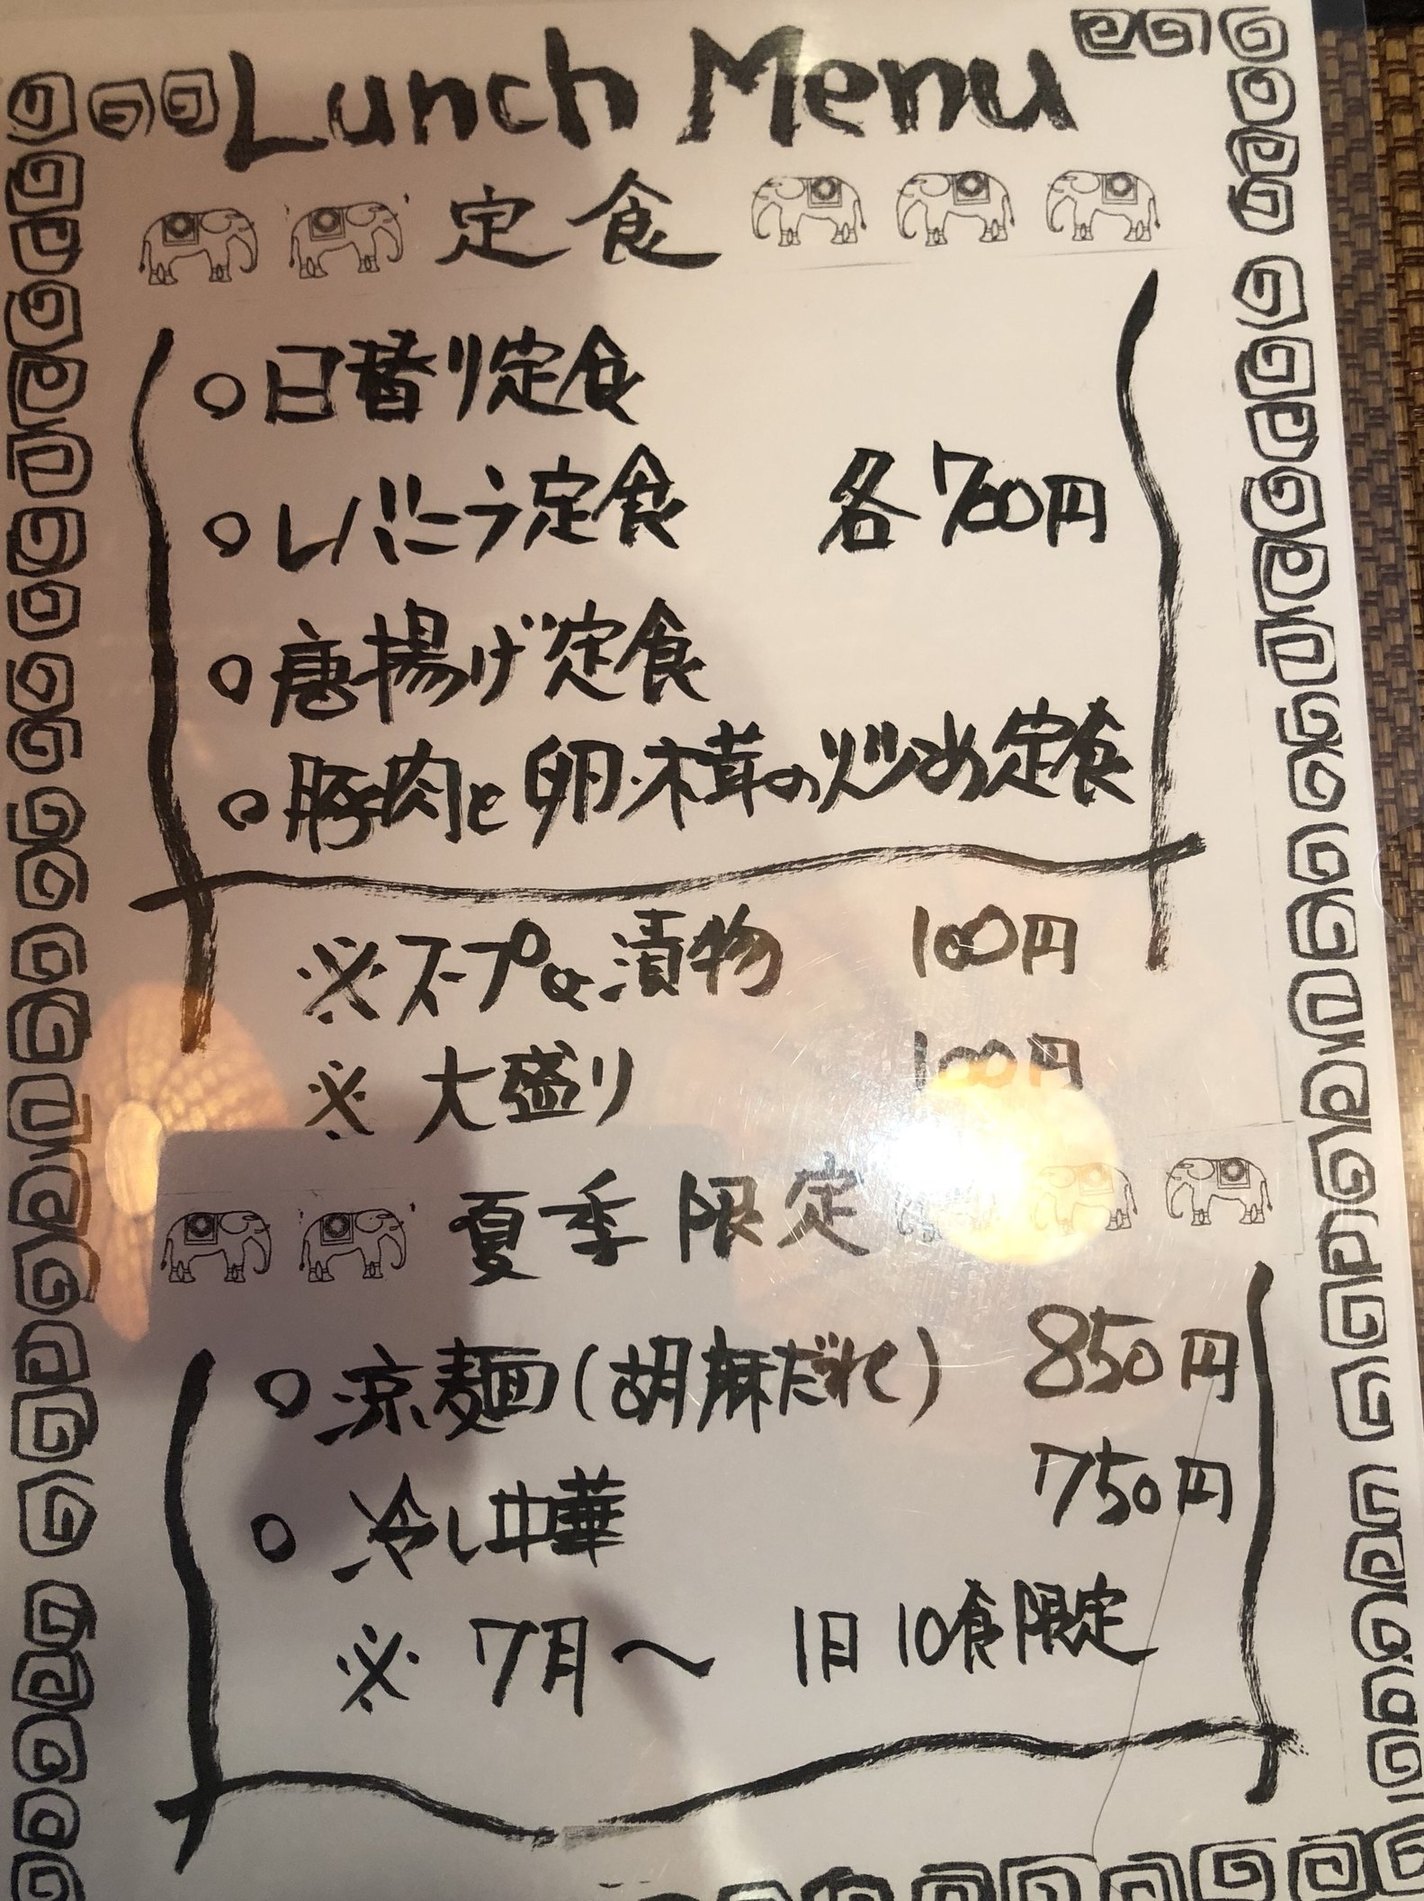 Lunch Menu
定食
○日替り定食
○レバニラ定食 各700円
○唐揚げ定食
○豚肉と卵・木茸の炒め定食
※スープと漬物 100円
※大盛り 100円
夏季限定
○涼麺(胡麻だれ) 850円
○冷し中華 750円
※7月〜 1日10食限定